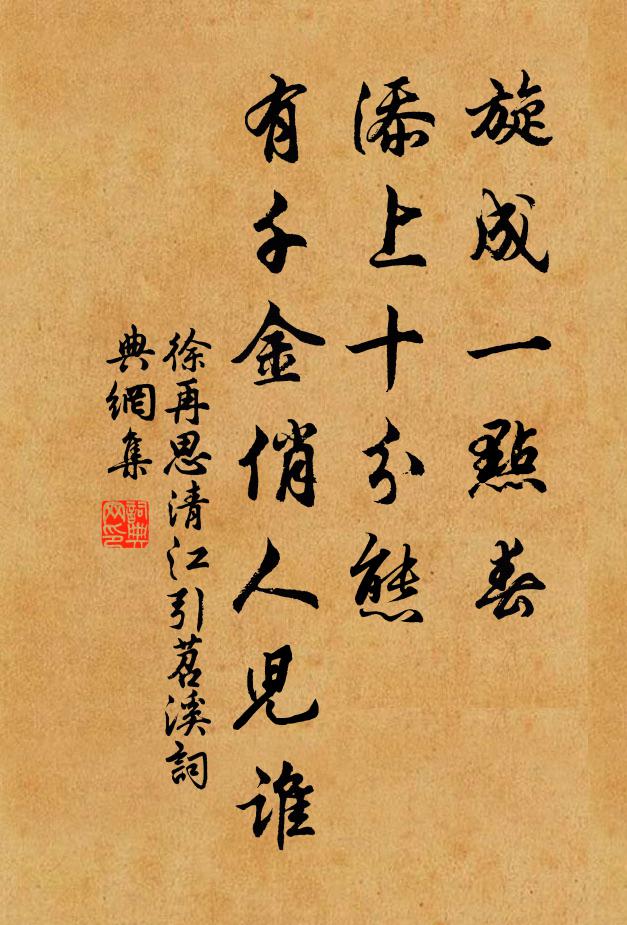 旋成一點春
添上十分態
有千金俏人兒誰
徐再思清江引苕溪詞
典網集
詞典網印